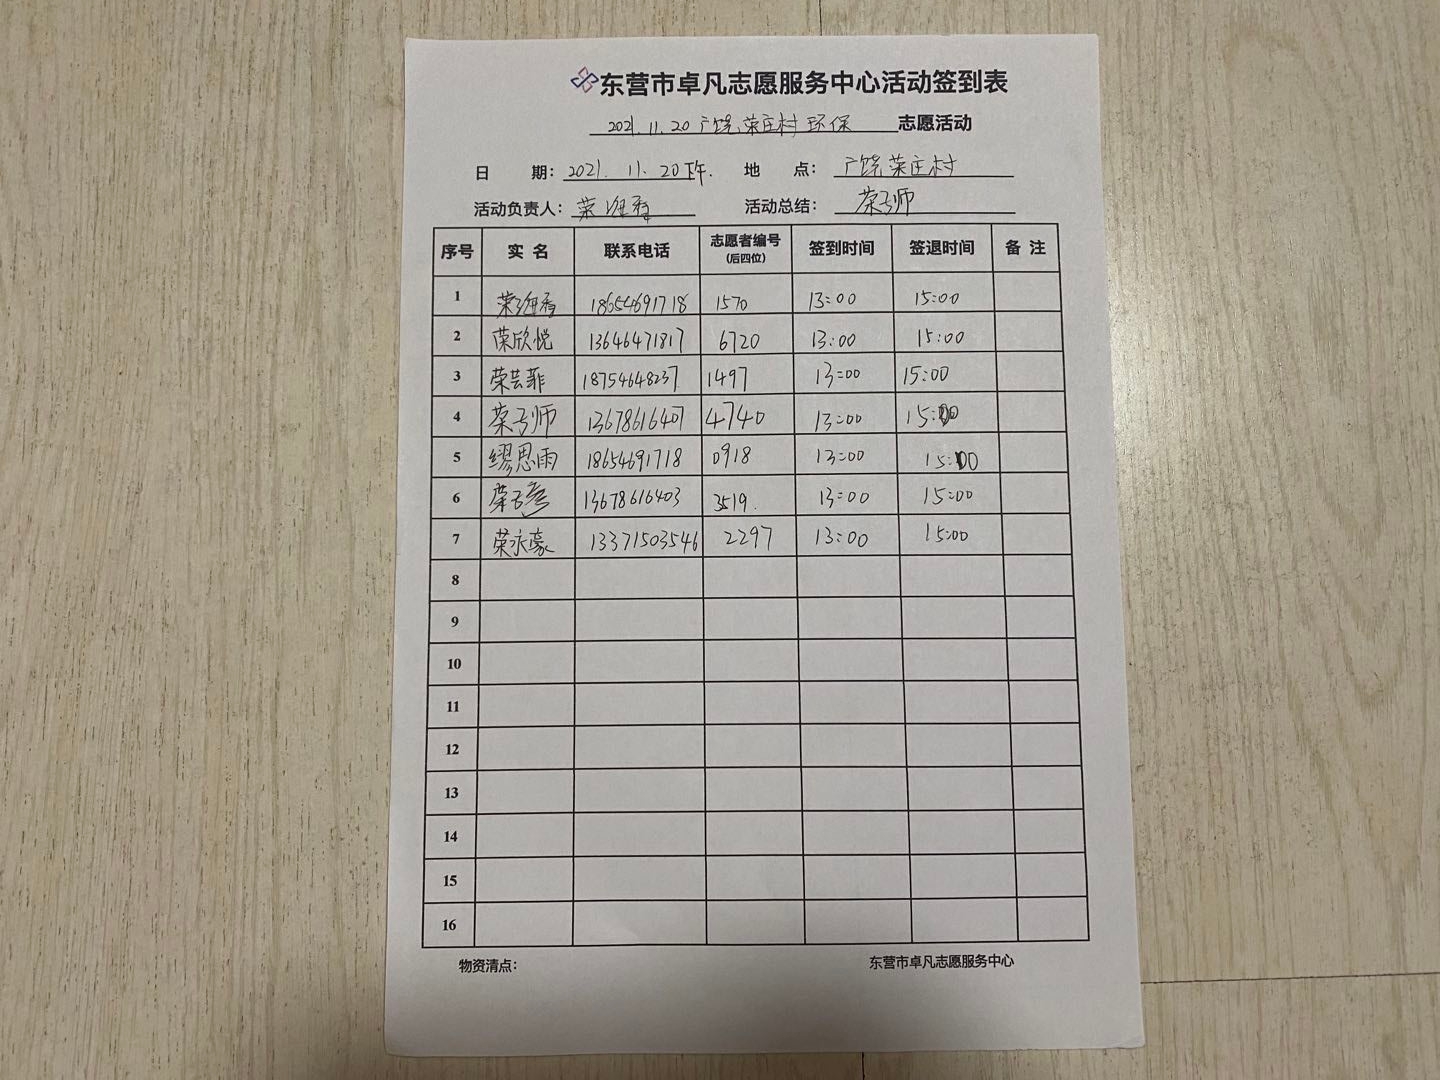 东营市卓凡志愿服务中心活动签到表
2021.11.20 广饶荣庄村环保 志愿活动
日 期：2021.11.20下午. 地 点：广饶荣庄村
活动负责人：荣维香 活动总结：荣子师
序号 实 名 联系电话 志愿者编号（后四位） 签到时间 签退时间 备 注
1 荣维香 18654691718 1570 13:00 15:00
2 荣欣悦 13646471817 6720 13:00 15:00
3 荣芸菲 18754648237 1497 13:00 15:00
4 荣子师 13678616407 4740 13:00 15:00
5 缪思雨 18654691718 0918 13:00 15:00
6 荣子 13678616403 3519. 13:00 15:00
7 荣永豪 13371503546 2297 13:00 15:00
8
9
10
11
12
13
14
15
16
物资清点： 东营市卓凡志愿服务中心